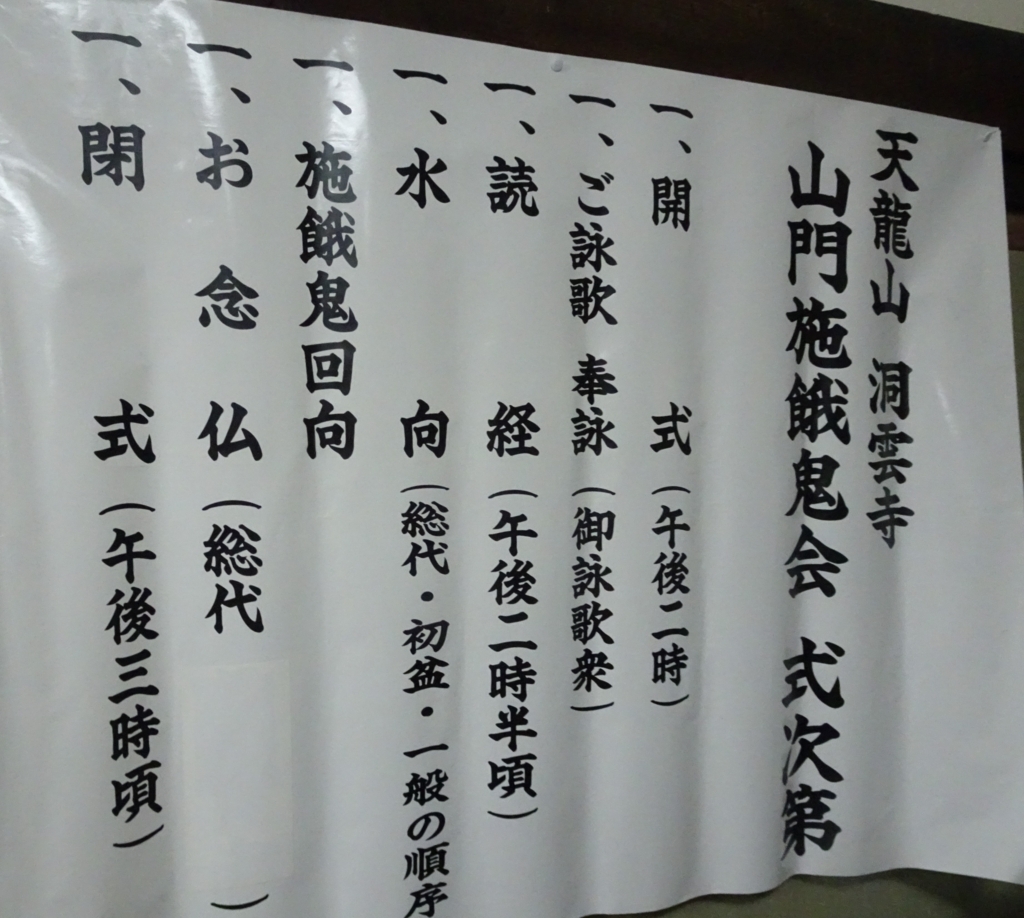 天龍山 洞雲寺
山門施餓鬼会 式次第
一、開 式（午後二時）
一、ご詠歌 奉詠（御詠歌衆）
一、読 経（午後二時半頃）
一、水 向（総代・初盆・一般の順序
一、施餓鬼回向
一、お 念 仏（総代 ）
一、閉 式（午後三時頃）